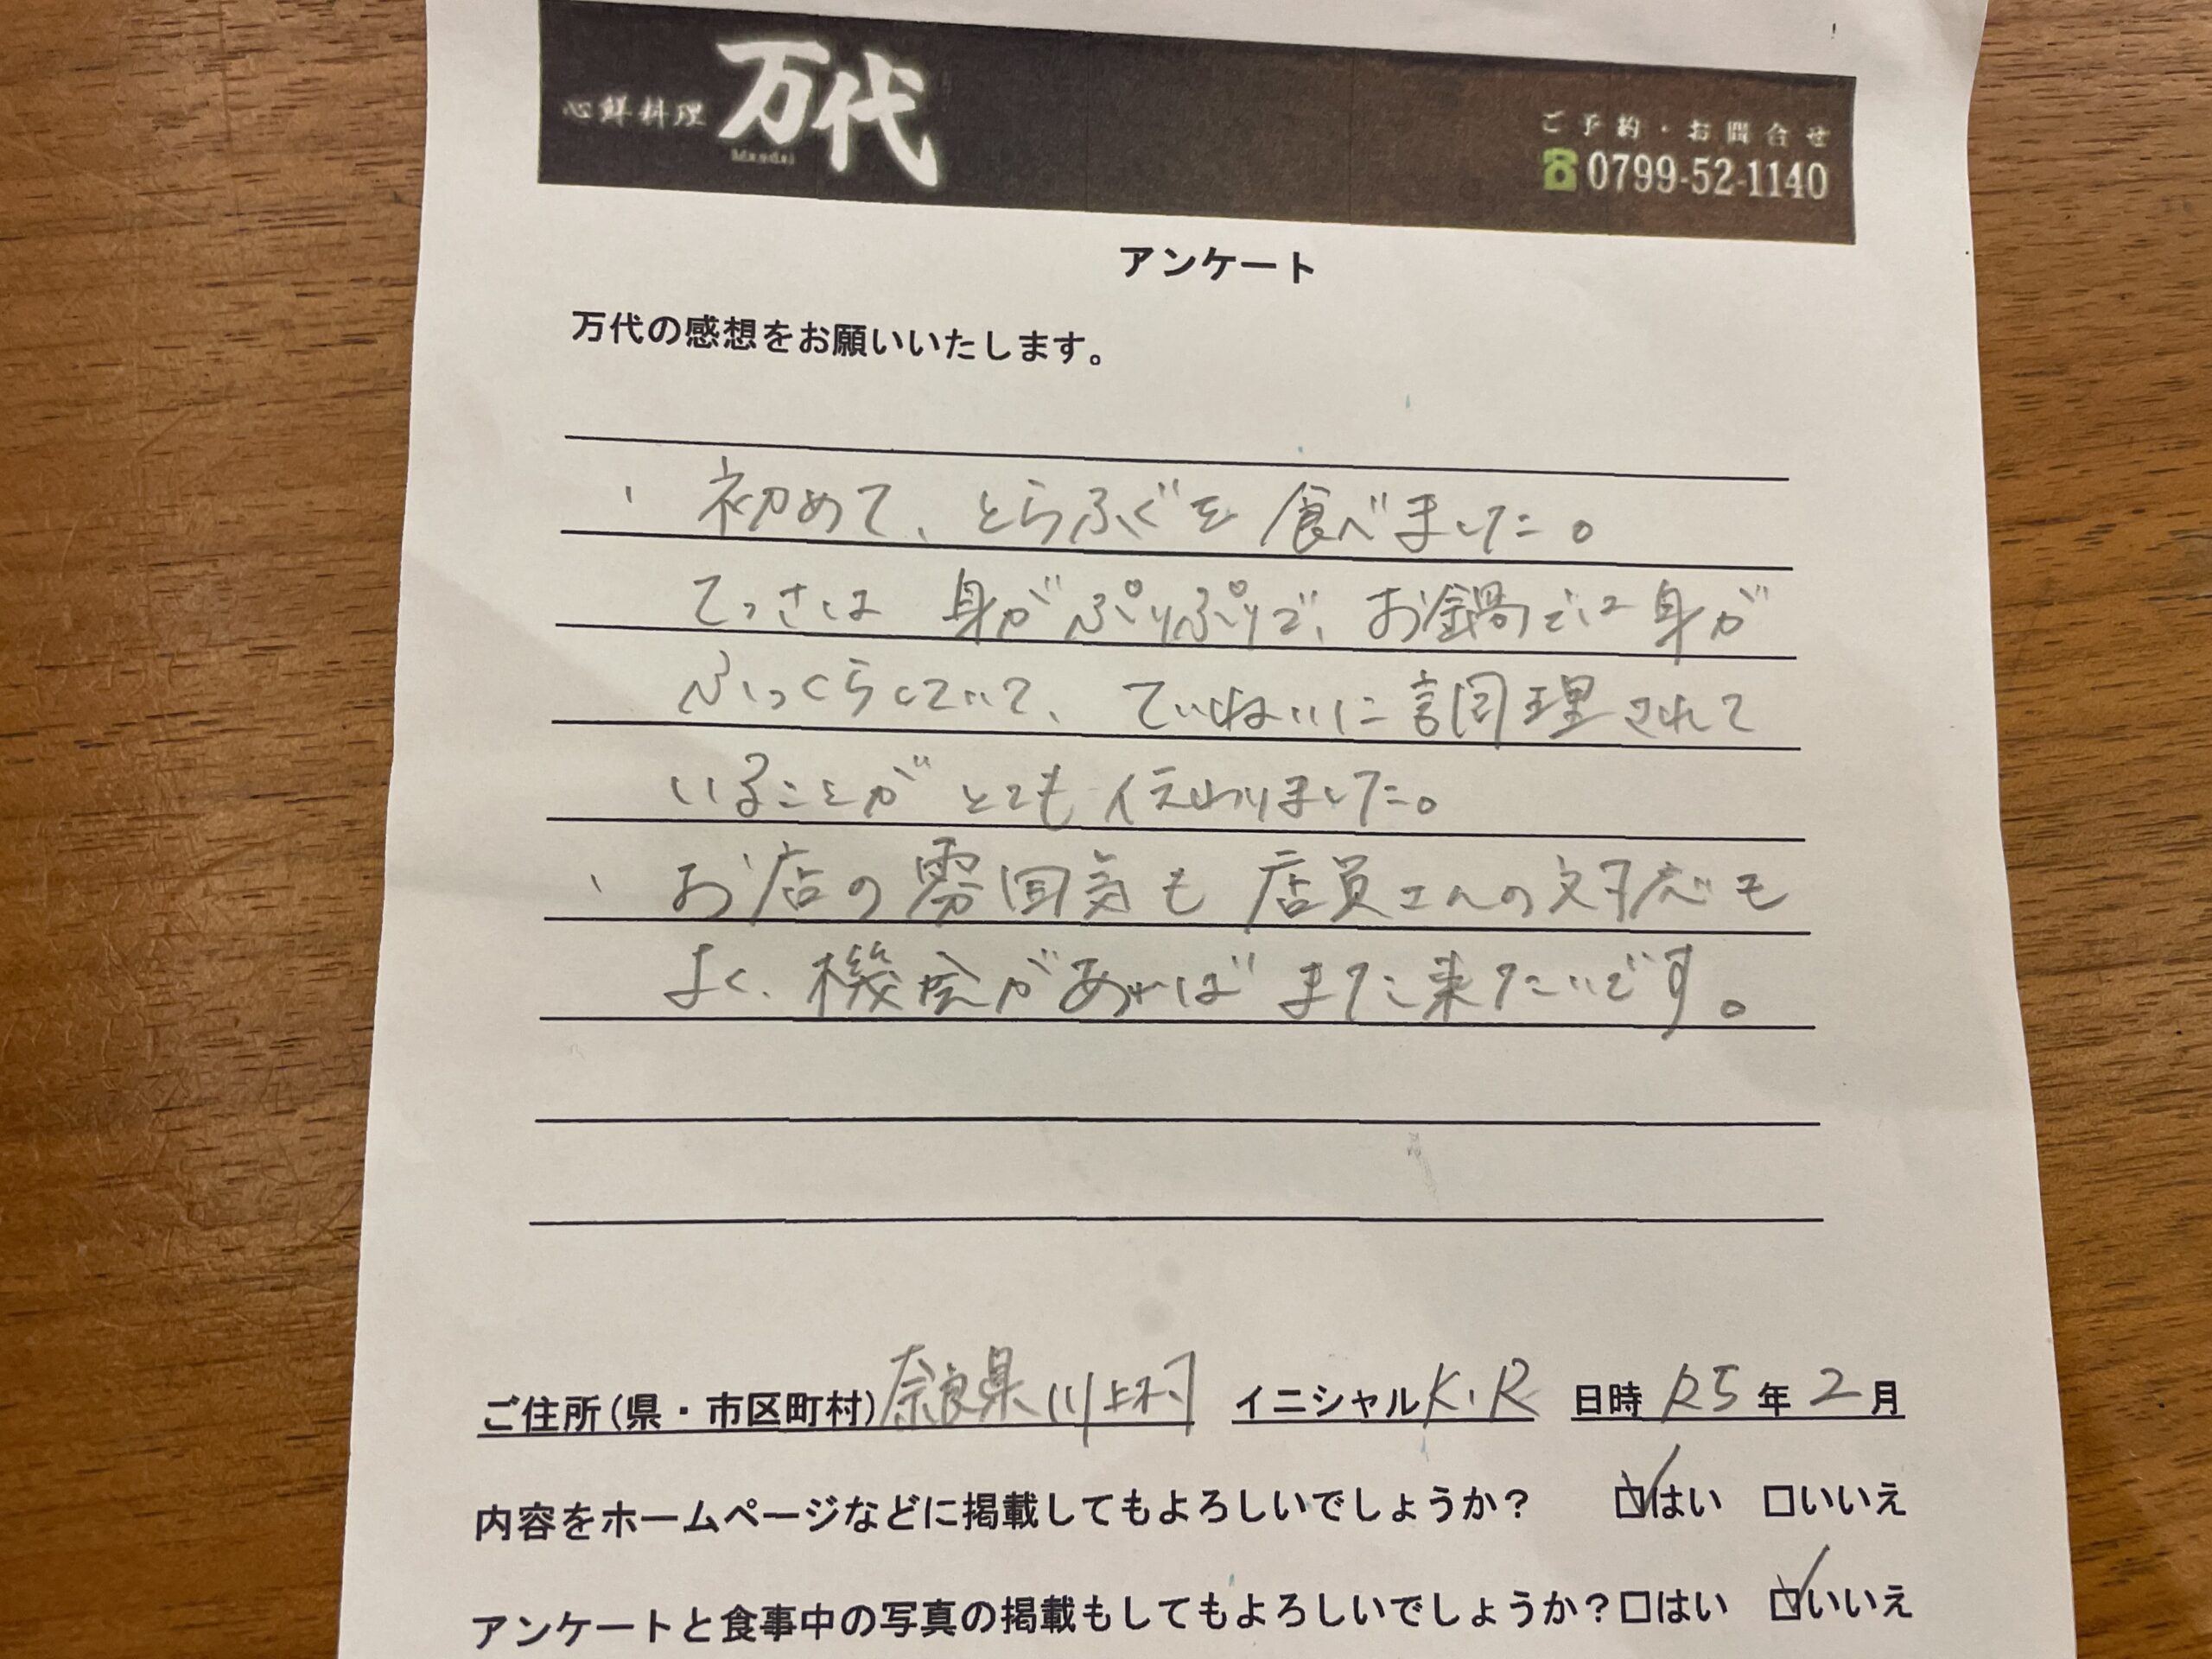 心鮮料理 万代
Mandai
ご予約・お問合せ
0799-52-1140
アンケート
万代の感想をお願いいたします。
・初めて、とらふぐを食べました。
てっさは身がぷりぷりで、お鍋では身が
ふっくらしていて、ていねいに調理されて
いることがとても伝わりました。
・お店の雰囲気も店員さんの対応も
よく、機会があればまた来たいです。
ご住所(県・市区町村)奈良県川上村 イニシャルK・R 日時 R5年2月
内容をホームページなどに掲載してもよろしいでしょうか? ☑はい □いいえ
アンケートと食事中の写真の掲載もしてもよろしいでしょうか?□はい ☑いいえ